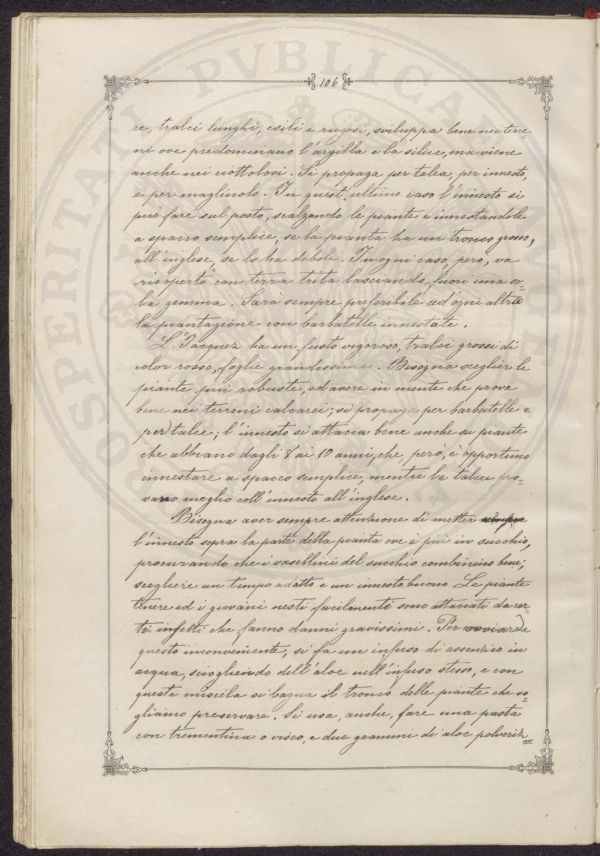 106
re, tralci lunghi, esili e rugosi, sviluppa bene nei terre
ni ove predominano l'argilla e la silice, ma viene
anche nei ciottolosi. Si propaga per talea, per innesto,
e per magliuolo. In quest'ultimo caso l'innesto si
può fare sul posto, scalzando le piante e innestandole
a spacco semplice, se la pianta ha un tronco grosso,
all'inglese, se lo ha debole. In ogni caso, però, va
ricoperto con terra trita lasciando fuori una so-
la gemma. Sarà sempre preferibile ad ogni altra
la piantagione con barbatelle innestate.
L'Jacquez ha un fusto vigoroso, tralci grossi di
color rosso, foglie grandissime. Bisogna sceglier le
piante più robuste, ed avere in mente che prova
bene nei terreni calcarei; si propaga per barbatelle e
per talee; l'innesto si attacca bene anche su piante
che abbiano dagli 8 ai 10 anni, che, però, è opportuno
innestare a spacco semplice, mentre le talee pro-
vano meglio coll'innesto all'inglese.
Bisogna aver sempre attenzione di metter
l'innesto sopra la parte della pianta ove è più in succhio,
procurando che i vasellini del succhio combinino bene;
scegliere un tempo adatto e un innesto buono. Le piante
tenere ed i giovani nesti facilmente sono attaccati da cer-
ti insetti che fanno danni gravissimi. Per ovviare a
questo inconveniente, si fa un infuso di assenzio in
acqua, sciogliendo dell'aloe nell'infuso stesso, e con
questa miscela si bagna il tronco delle piante che vo-
gliamo preservare. Si usa, anche, fare una pasta
con trementina o visco, e due grammi di aloe polveriz=
PROSPERITATI PVBLICAE